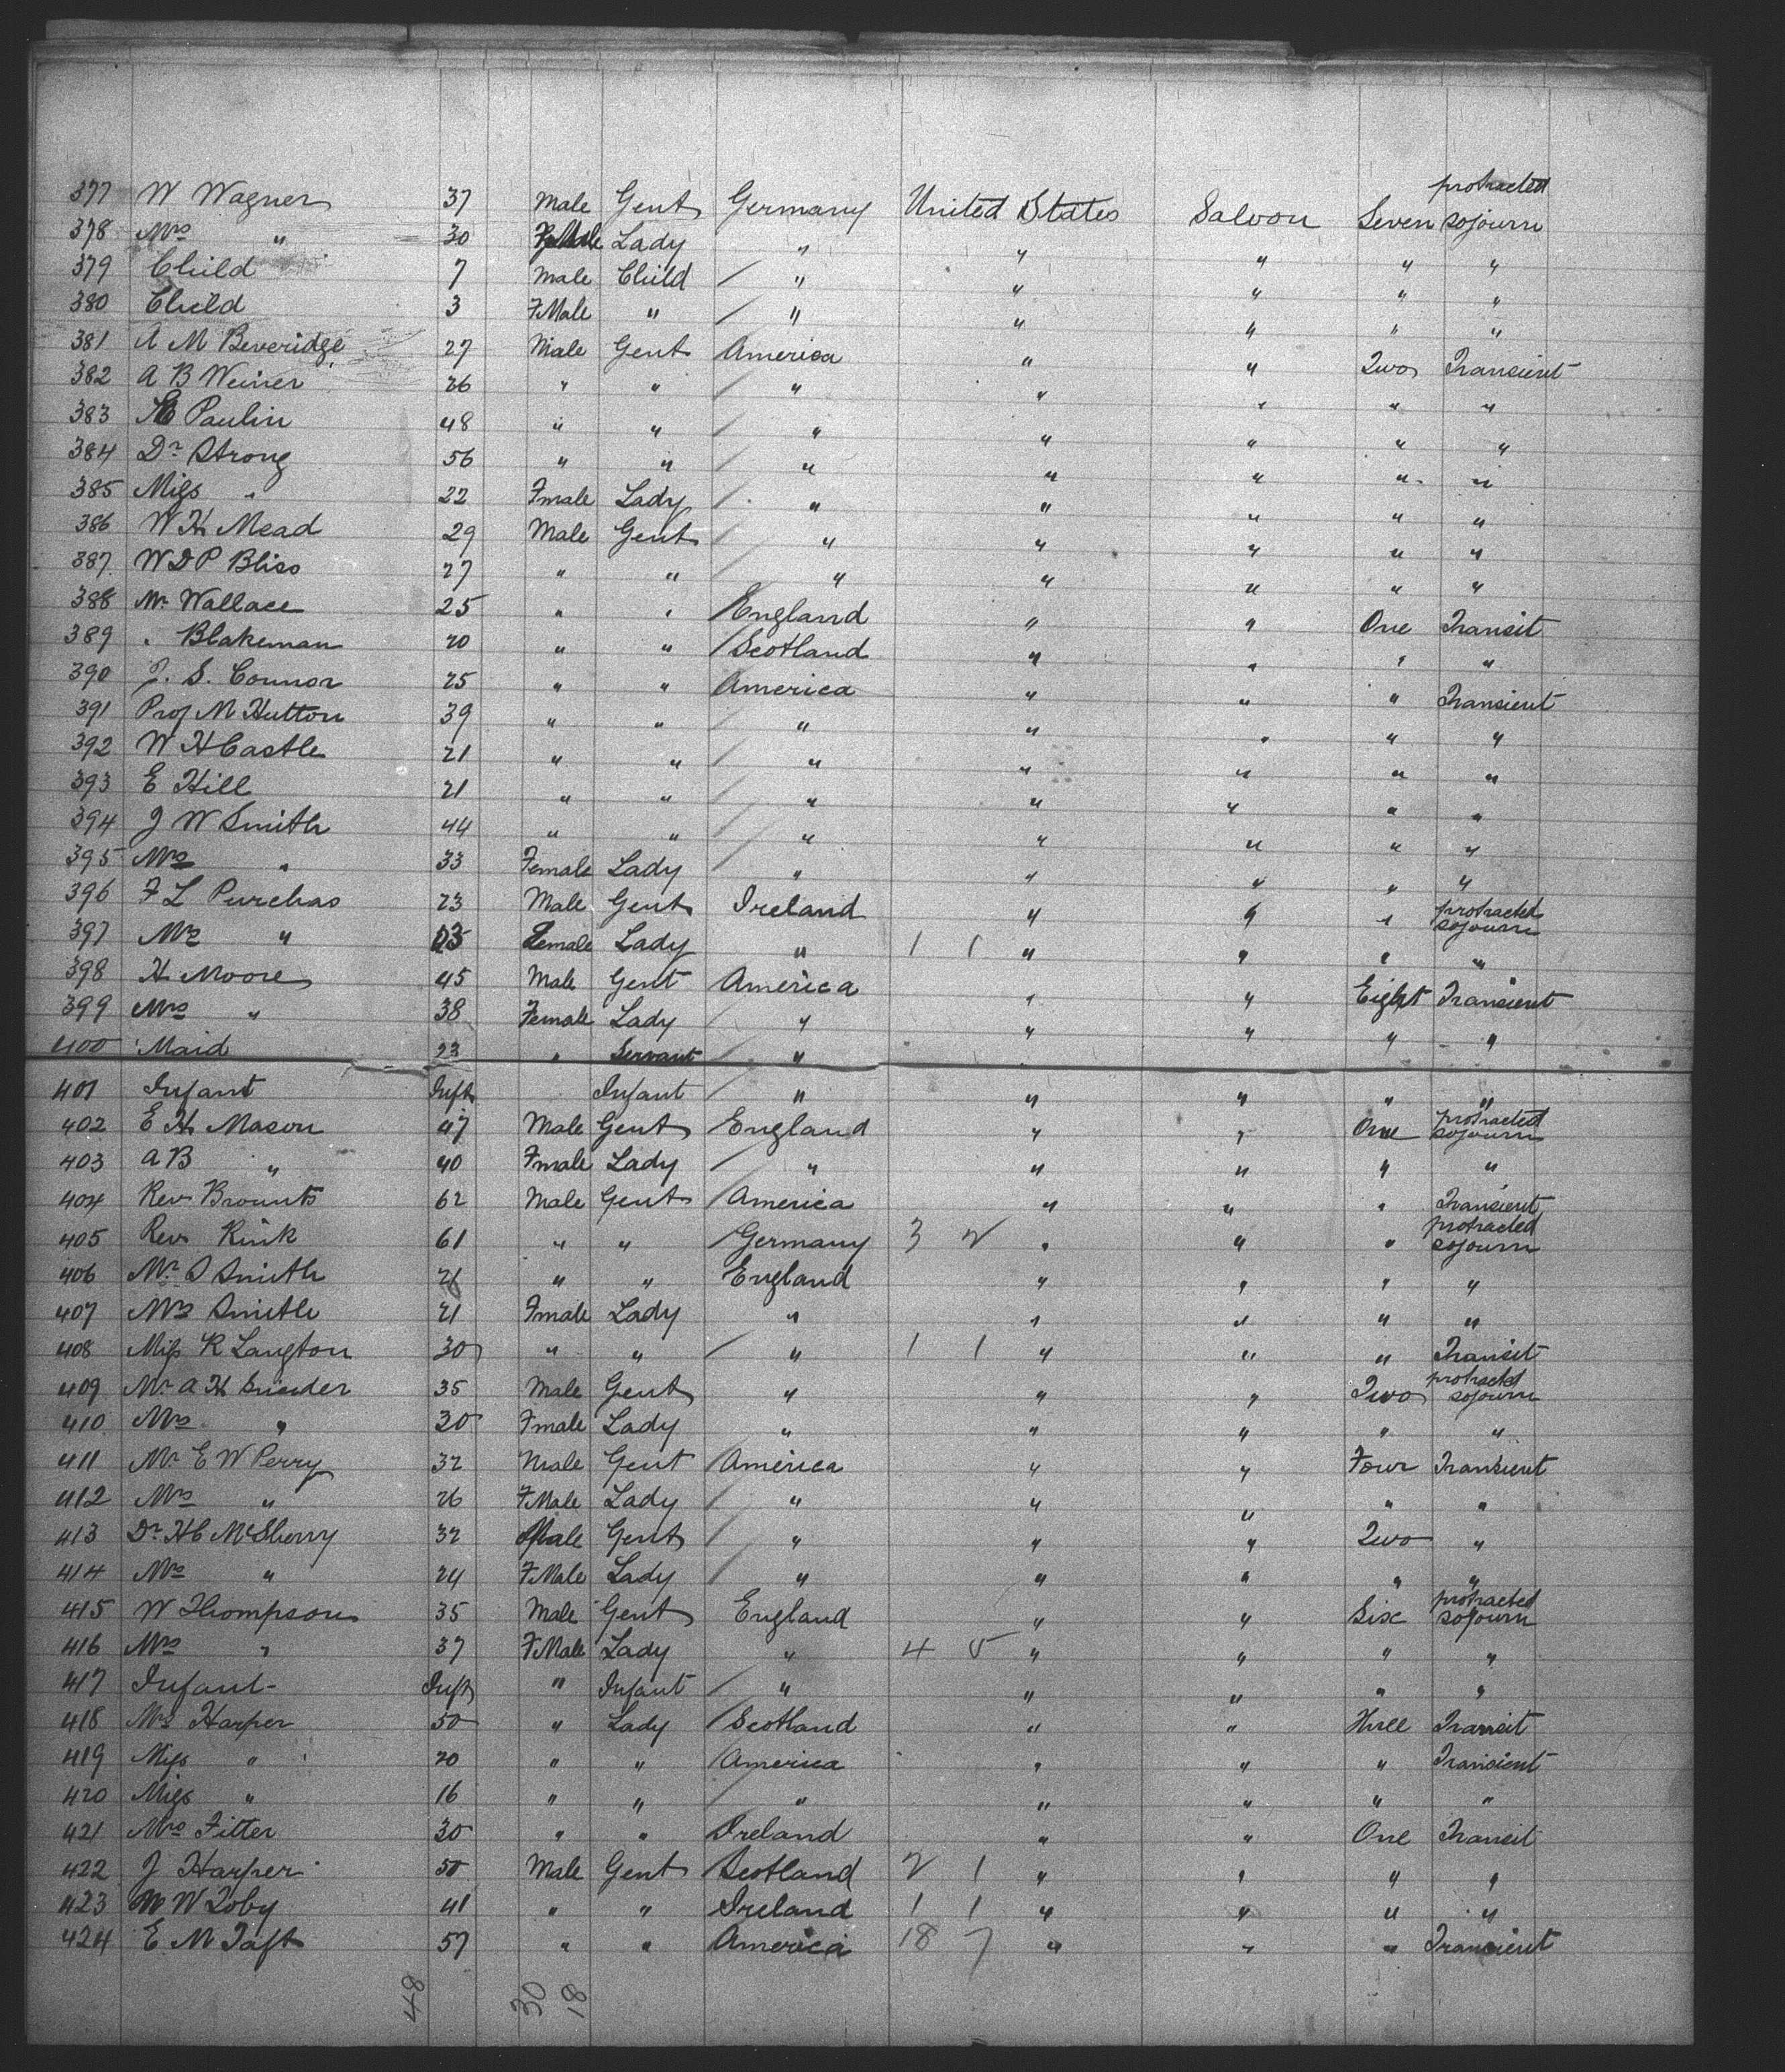 377 W Wagner 37 Male Gent Germany United States Saloon Seven protracted sojourn
378 Mrs " 30 FMale Lady " " " " "
379 Child 7 Male Child " " " " "
380 Child 3 FMale " " " " " "
381 A M Beveridge 27 Male Gent America " " Two Transient
382 A B Weiner 26 " " " " " " "
383 Paulin 48 " " " " " " "
384 Dr Strong 56 " " " " " " "
385 Miss " 22 Fmale Lady " " " " "
386 W H Mead 29 Male Gent " " " " "
387 W D P Bliss 27 " " " " " " "
388 Mr Wallace 25 " " England " " One Transit
389 " Blakeman 20 " " Scotland " " " "
390 J. S. Connor 25 " " America " " " Transient
391 Prof M Hutton 39 " " " " " " "
392 W H Castle 21 " " " " " " "
393 E Hill 21 " " " " " " "
394 J W Smith 44 " " " " " " "
395 Mrs " 33 Female Lady " " " " "
396 F L Purchas 23 Male Gent Ireland " " " protracted sojourn
397 Mrs " Female Lady " 1 1 " " " "
398 H Moore 45 Male Gent America " " Eight Transient
399 Mrs " 38 Female Lady " " " " "
400 Maid 23 " Servant "
401 Infant Inft Infant " " " " "
402 E H Mason 47 Male Gent England " " One protracted sojourn
403 A B " 40 Fmale Lady " " " " "
404 Rev Brounts 62 Male Gent America " " " Transient
405 Rev Rink 61 " " Germany 3 2 " " " protracted sojourn
406 Mr S Smith 26 " " England " " " "
407 Mrs Smith 21 Fmale Lady " " " " "
408 Miss R Langton 30 " " " 1 1 " " " Transit
409 Mr A H 35 Male Gent " " " Two protracted sojourn
410 Mrs " 30 Fmale Lady " " " " "
411 Mr E W Perry 32 Male Gent America " " Four Transient
412 Mrs " 26 FMale Lady " " " " "
413 Dr H C McSherry 32 Male Gent " " " Two "
414 Mrs " 24 FMale Lady " " " " "
415 W Thompson 35 Male Gent England " " Six protracted sojourn
416 Mrs " 37 FMale Lady " 4 5 " " " "
417 Infant Inft " Infant " " " " "
418 Mrs Harper 50 " Lady Scotland " " Three Transit
419 Miss " 20 " " America " " " Transient
420 Miss " 16 " " " " " " "
421 Mrs Fitter 30 " " Ireland " " One Transit
422 J Harper 50 Male Gent Scotland 2 1 " " " "
423 W Toby 41 " " Ireland 1 1 " " " "
424 E M Taft 57 " " America 18 7 " " " Transient
48 30 18